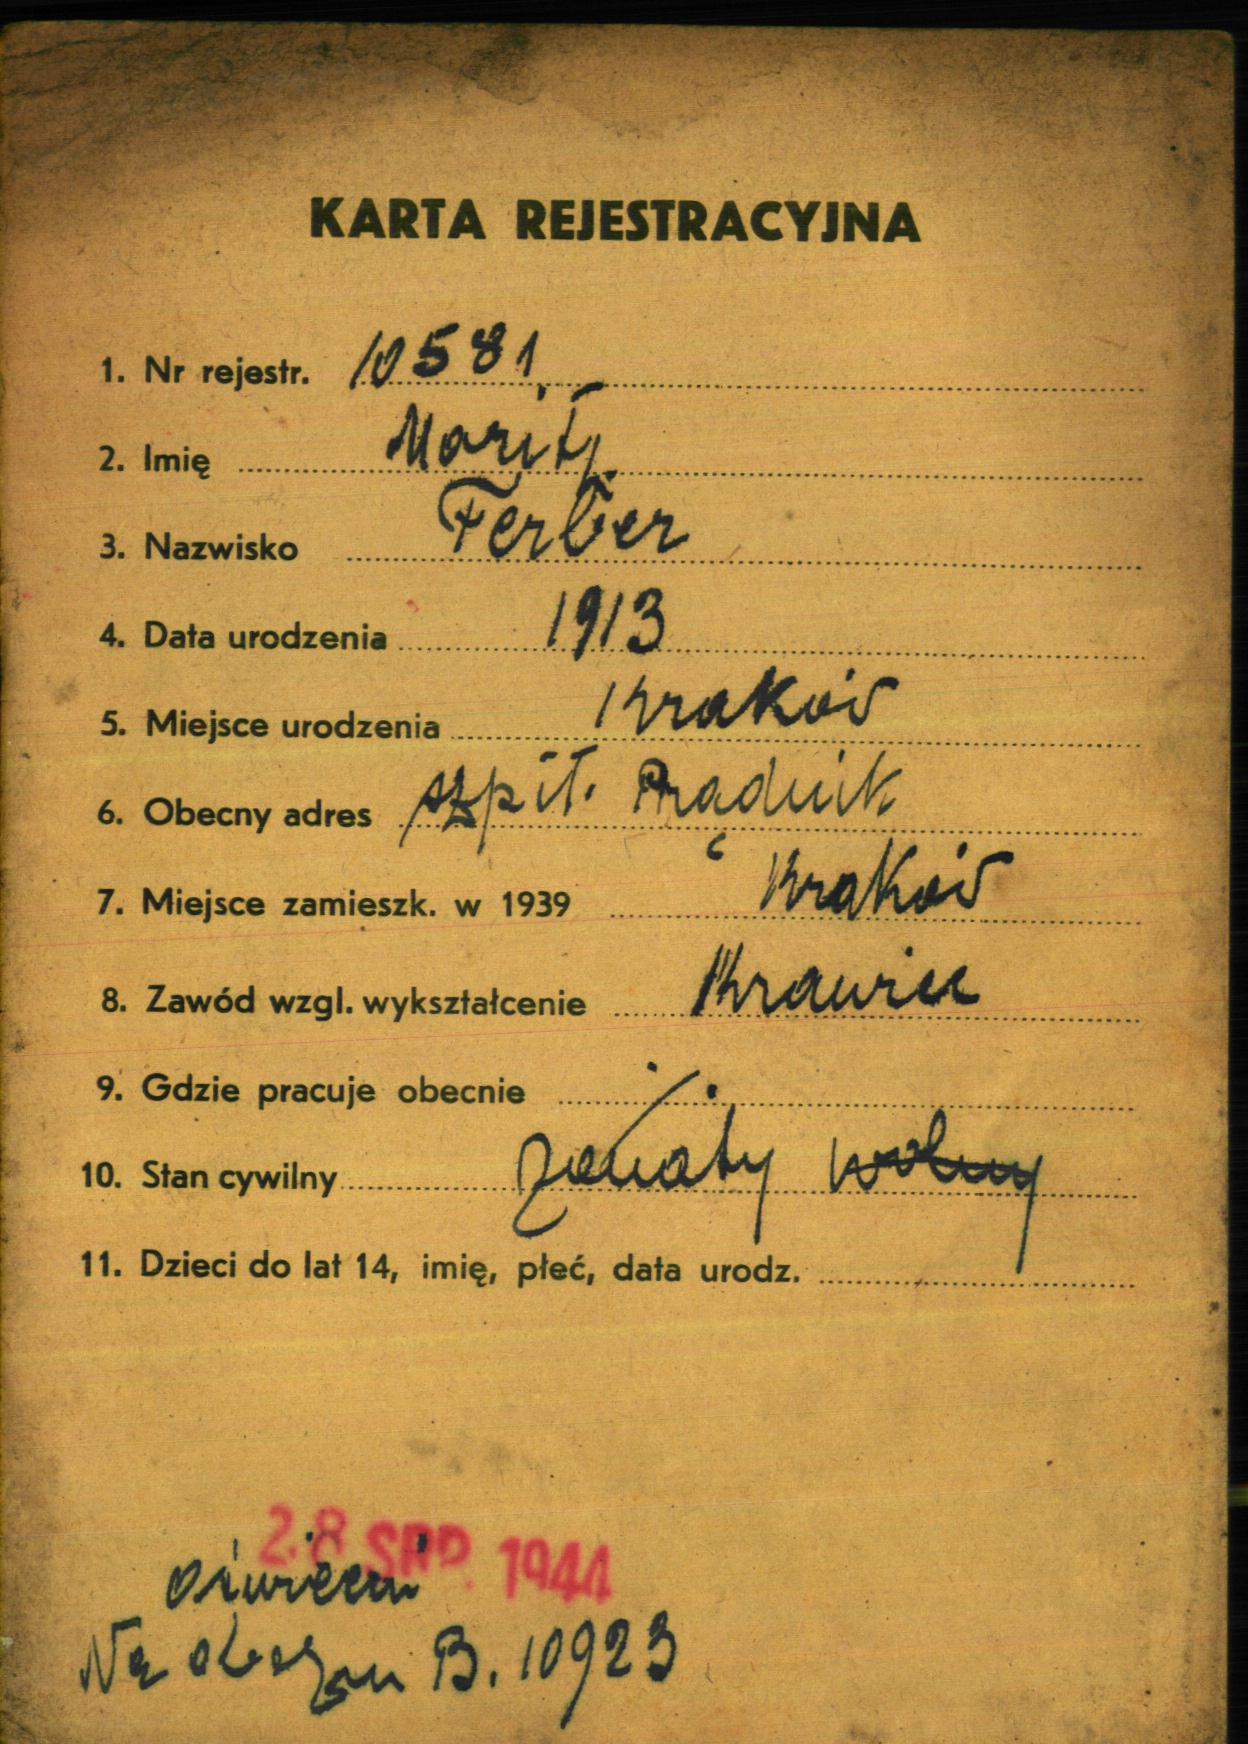 KARTA REJESTRACYJNA
1. Nr rejestr. 10581
2. Imię Moritz
3. Nazwisko Ferber
4. Data urodzenia 1913
5. Miejsce urodzenia Kraków
6. Obecny adres szpit. Prądnik
7. Miejsce zamieszk. w 1939 Kraków
8. Zawód wzgl. wykształcenie Krawiec
9. Gdzie pracuje obecnie
10. Stan cywilny żonaty wolny
11. Dzieci do lat 14, imię, płeć, data urodz.
28 SRP. 1944
Oświęcim
Nr obozu B. 10923